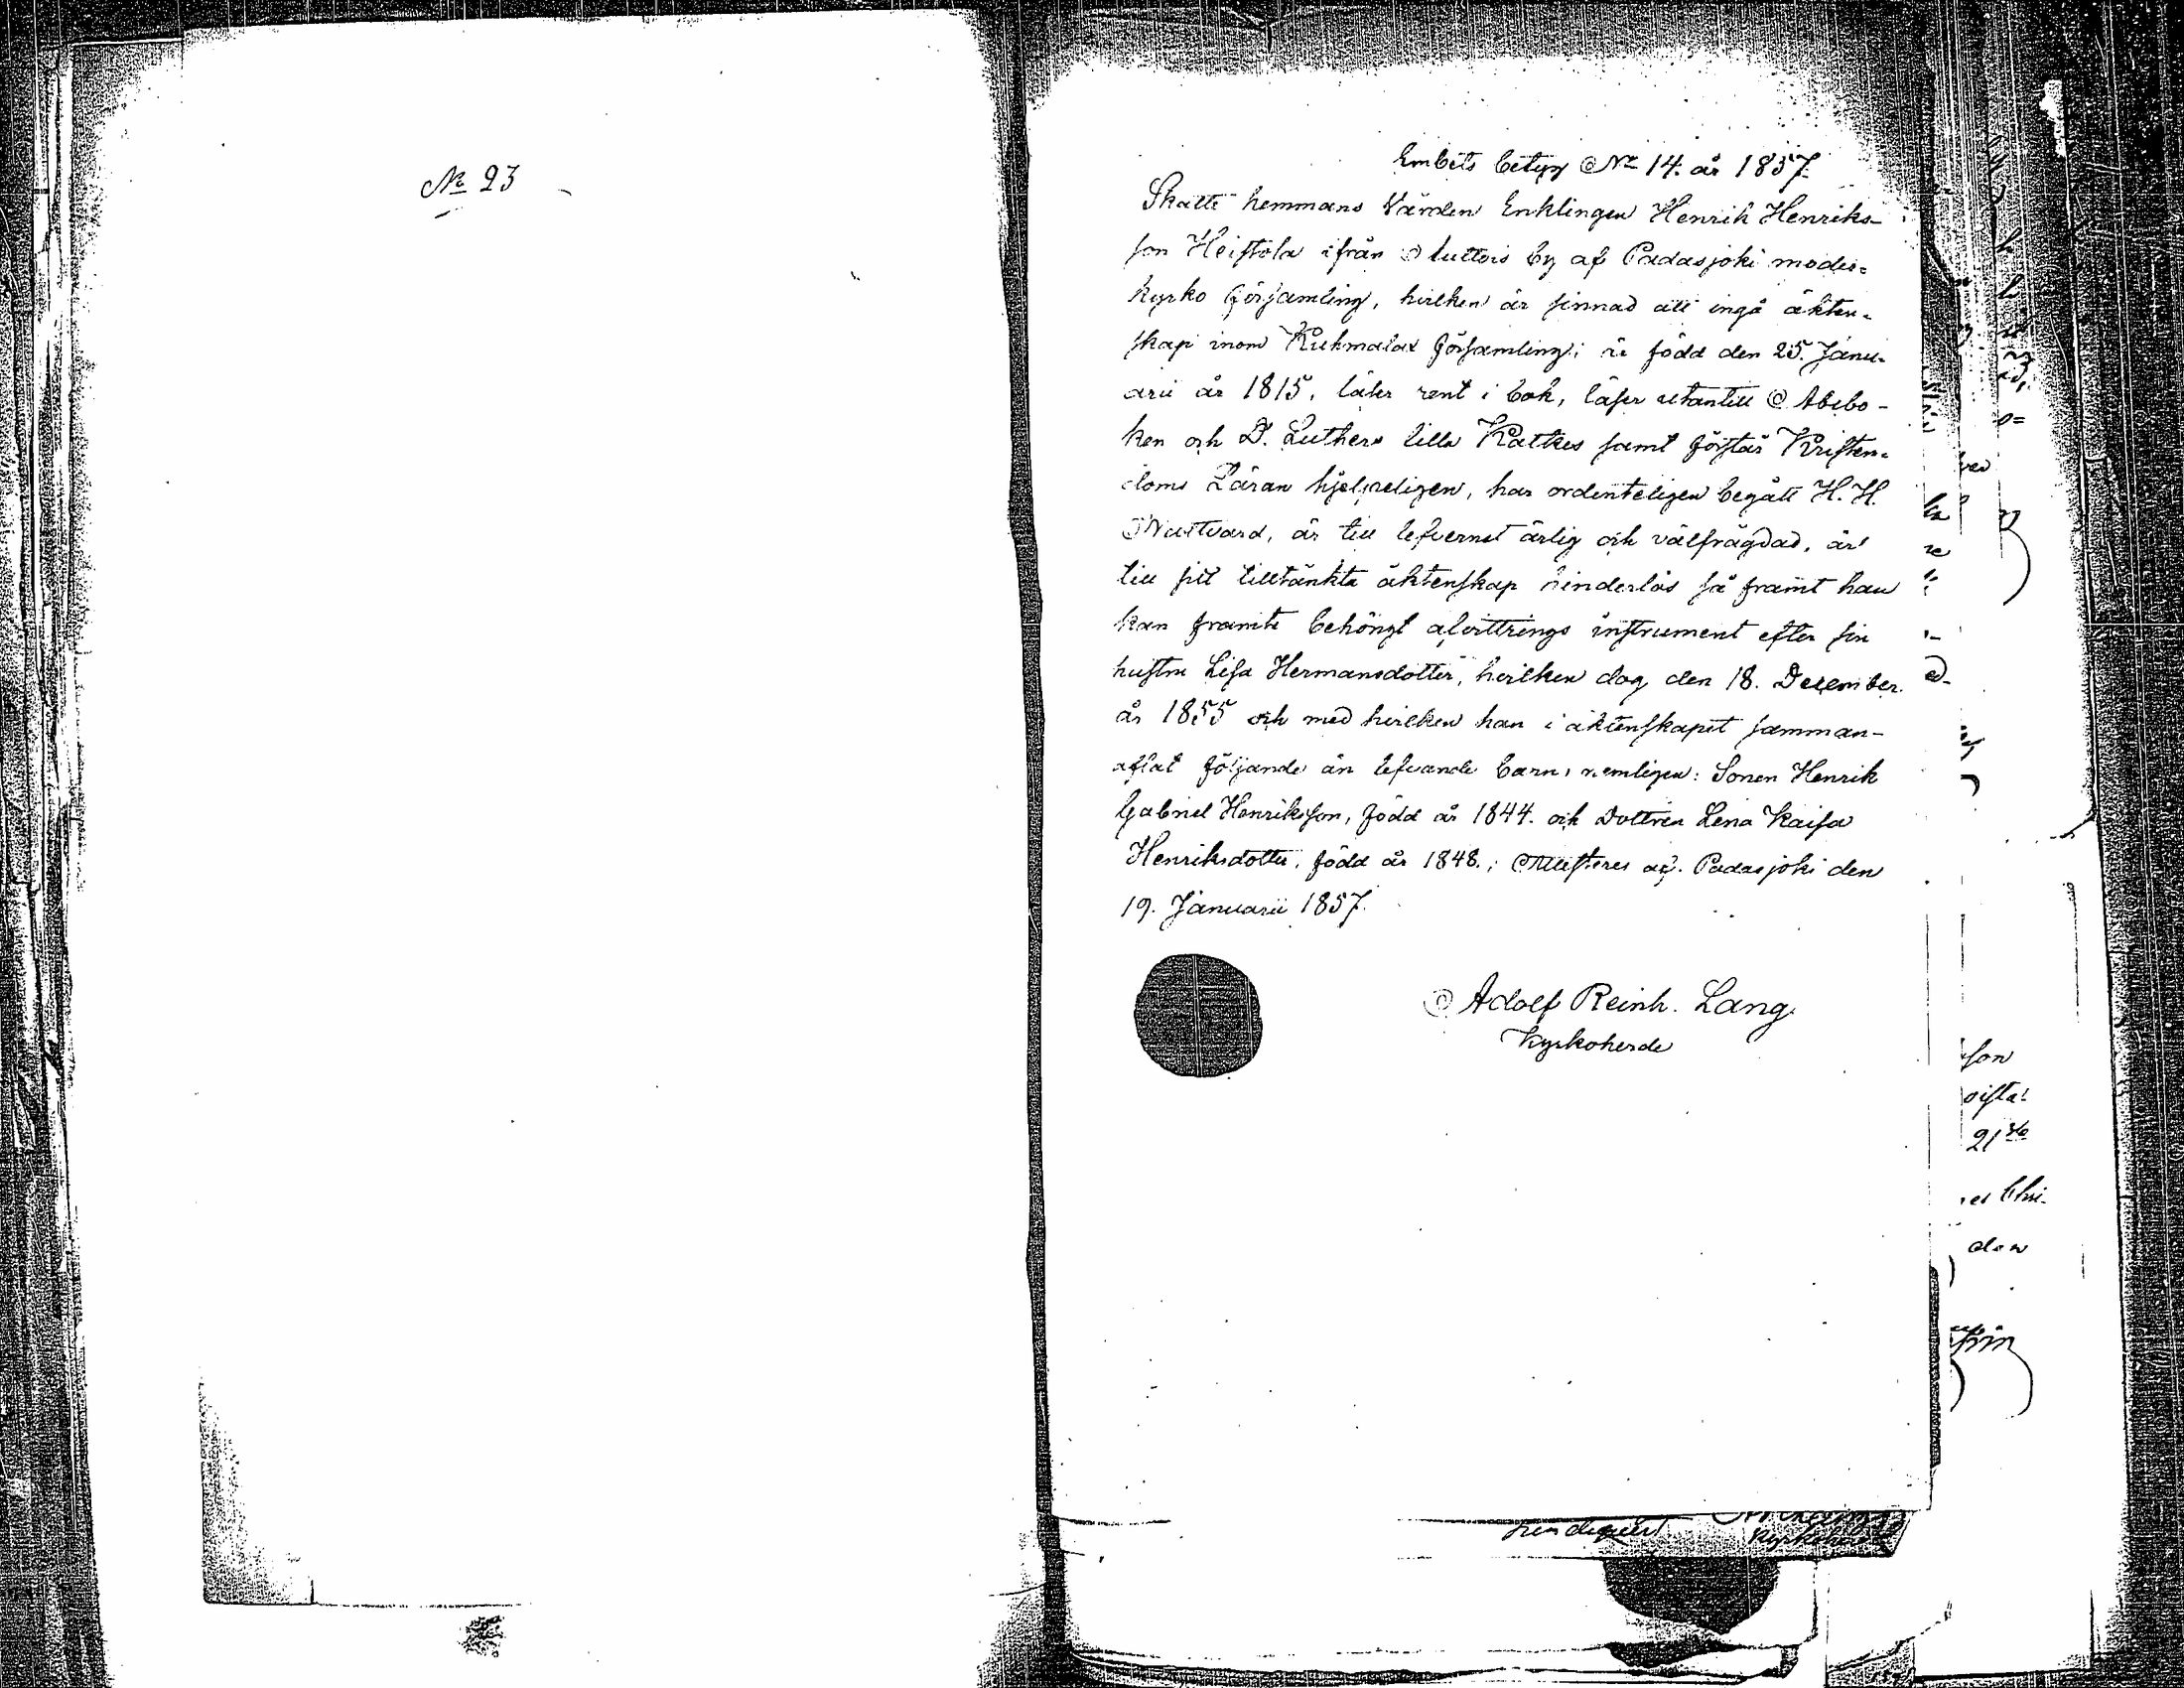 № 23
Embets betyg № 14. år 1857.
Skatte hemmans Värden Enklingen Henrik Henriks-
son Heistola ifrån Auttois by af Padasjoki moder=
kyrko församling, hvilken är sinnad att ingå äkten=
skap inom Kuhmalax församling; är född den 25. Janu=
arii år 1815, läser rent i bok, läser utantill Abebo-
ken och D. Luthers lilla Katkes samt förstår Kristen=
doms Läran hjelpeligen, har ordenteligen begått H. H.
Nattvard, är till lefvernet ärlig och välfrägdad, är
till sitt tilltänkta äktenskap hinderlös så framt han
kan framte behörigt afvittrings instrument efter sin
hustru Lisa Hermansdotter, hvilken dog den 18. December
år 1855 och med hvilken han i äktenskapet samman-
aflat följande än lefvande barn, nemligen: Sonen Henrik
Gabriel Henriksson, född år 1844. och Dottren Lena Kaisa
Henriksdotter, född år 1848.; Attesteras af. Padasjoki den
19. Januarii 1857.
Adolf Reinh. Lang
Kyrkoherde
son
21
den